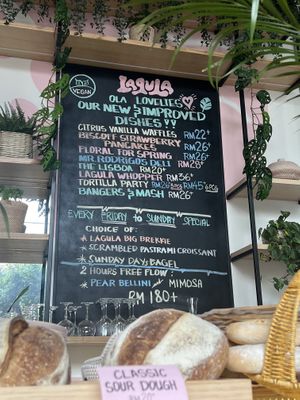 100%
VEGAN
LAGULA
OLA LOVELIES
OUR NEW & IMPROVED
DISHES
CITRUS VANILLA WAFFLES RM22+
BISCOFF STRAWBERRY
PANCAKES RM26+
FLORAL FOR SPRING RM26+
MR. RODRIGO'S DELI RM28+
THE LISBOA RM20+
LAGULA WHOPPER RM36+
TORTILLA PARTY RM26 RM45
BANGERS & MASH RM26+
EVERY FRIDAY to SUNDAY SPECIAL
CHOICE OF:
LAGULA BIG BREKKIE
SCRAMBLED PASTRAMI CROISSANT
SUNDAY DAY BAGEL
2 HOURS FREE FLOW:
PEAR BELLINI MIMOSA
RM 180+
CLASSIC
SOUR DOUGH
RM20+